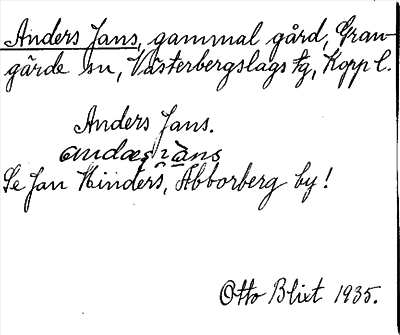 Anders Jans, gammal gård, Gran-
gärde sn, Västerbergslags tg, Kopp l.
Anders Jans.
Se Jan Hinders, Abborberg by!
Otto Blixt 1935.